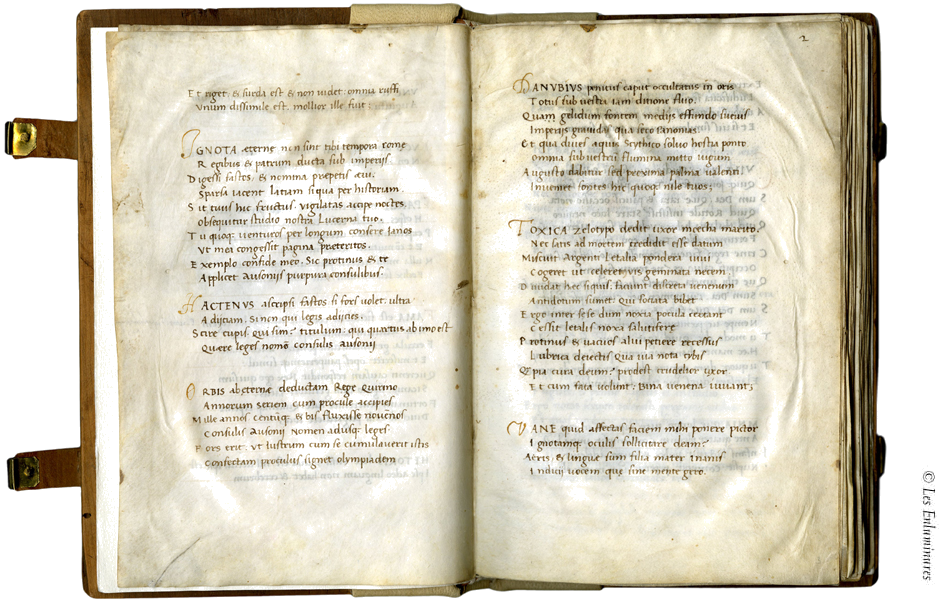 Et riget, & surda est & non uidet: omnia ruffi
Vnum dissimile est, mollior ille fuit;
IGNOTA aeterne non sint tibi tempora rome
Regibus & patrum ducta sub imperijs
Digessi fastos, & nomina praepetis aeui.
Sparsa iacent latiam siqua per historiam.
Sit tuus hic fructus. uigilatas accipe noctes
obsequitur studio nostra Lucerna tuo.
Tu quoq; uenturos per longum consere Ianos
Vt mea congessit pagina praeteritos.
Exemplo confide meo. Sic protinus & te
Applicet Ausonijs purpura consulibus.
HACTENUS ascripsi fastos si sors uolet, ultra
Adijciam. Si non qui legis adijcies.
Scire cupis, qui sim? titulum: qui quartus ab imo est
Quaere leges nomen consulis Ausonii
ORBIS ab aeternae deductam Rege Quirino
Annorum seriem cum procule accipies
Mille annos centumq; & bis fluxisse nouenos
Consulis Ausonii nomen adusq; leges
Fors erit, vt lustrum cum se cumulauerit istis
Confectam proculus signet olympiadem
2
DANVBIVS penitus caput occultatus in oris
Totus sub uestra iam ditione fluo.
Quam gelidum fontem medijs effundo sueuis
Imperijs grauida qua seco pannonias.
Et qua diues aquis Scythico soluo hostia ponto
Omnia sub uestrum flumina mitto iugum
Augusto dabitur sed proxima palma ualenti.
Inuenit fontes hic quoq; nilo tuos;
TOXICA zelotypo dedit uxor moecha marito.
Nec satis ad mortem credidit esse datum
Miscuit Argenti letalia pondera uiui
Cogeret ut celeret uis geminata necem
Diuidat hec siquis, faciunt discreta uenenum
Antidotum sumet. Qui sociata bibet
Ergo inter sese dum noxia pocula certant
Cessit letalis noxa salutifere
Protinus & uacuos alui petiere recessus
Lubrica deiectis Qua uia nota cybis
Q pia cura deum? prodest crudelior uxor.
Et cum fata uolunt; Bina uenena iuuant;
VANE quid affectas faciem mihi ponere pictor
Ignotamq; oculis sollicitare deam?
Aeris, & linguae sum filia mater inanis
Indicij uocem que sine mente gero.
© Les Enluminures